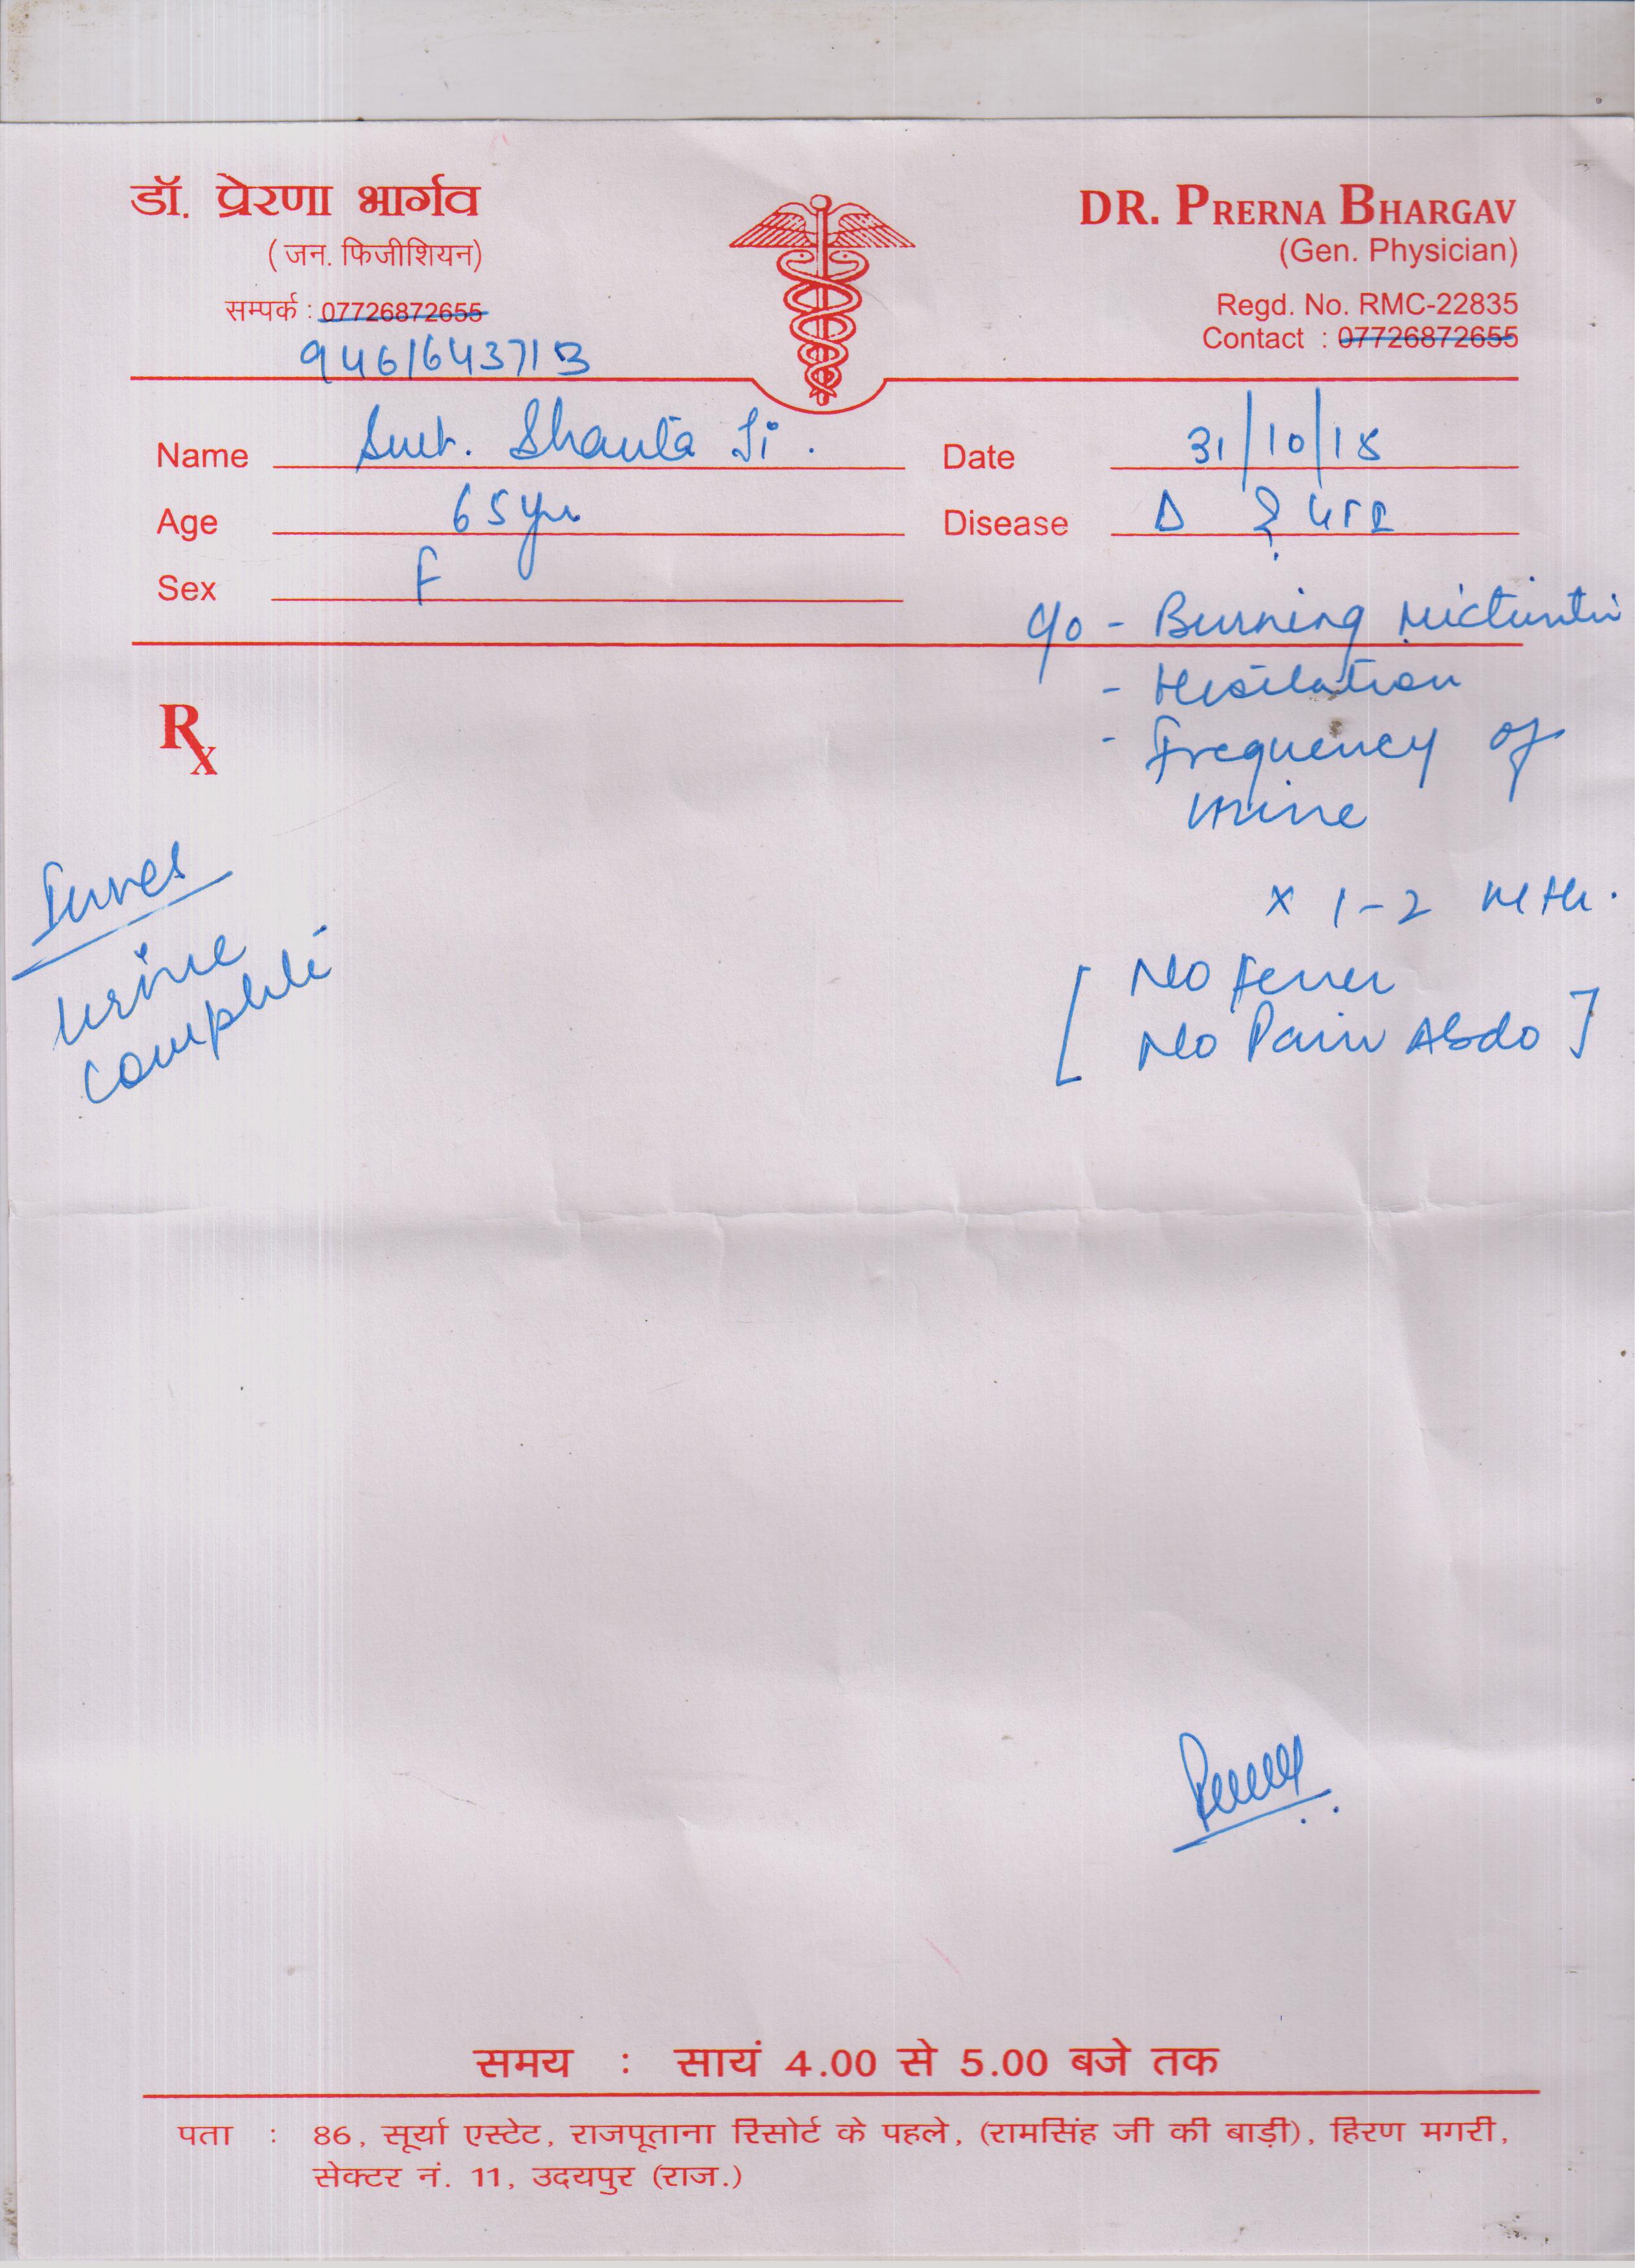 डॉ. प्रेरणा भार्गव
(जन. फिजीशियन)
सम्पर्क : 07726872655
9461643713
DR. PRERNA BHARGAV
(Gen. Physician)
Regd. No. RMC-22835
Contact : 07726872655
Name Smt. Shanta Ji.
Date 31/10/18
Age 65 yr
Disease Δ ? UTI
Sex F
c/o - Burning Micturition
- Hesitation
- Frequency of
urine
x 1-2 Mth.
[ No Fever
No Pain Abdo ]
Rx
Inves
Urine
complete
समय : सायं 4.00 से 5.00 बजे तक
पता : 86, सूर्या एस्टेट, राजपूताना रिसोर्ट के पहले, (रामसिंह जी की बाड़ी), हिरण मगरी,
सेक्टर नं. 11, उदयपुर (राज.)